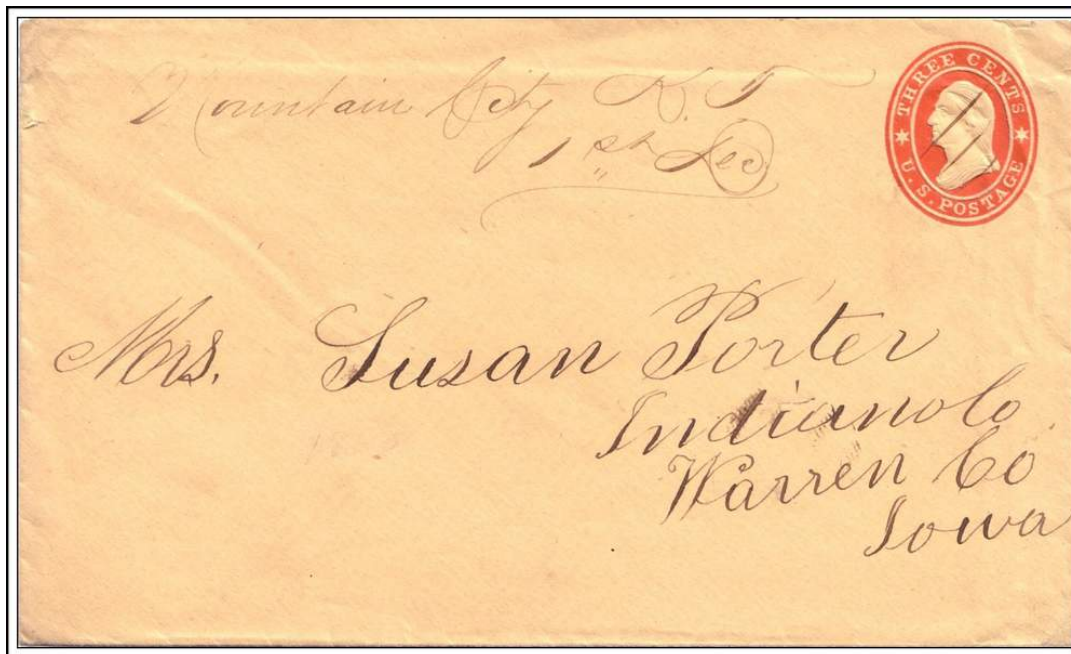 Mountain City K. T
1st Dec
THREE CENTS
U. S. POSTAGE
Mrs. Susan Porter
Indianola
Warren Co
Iowa